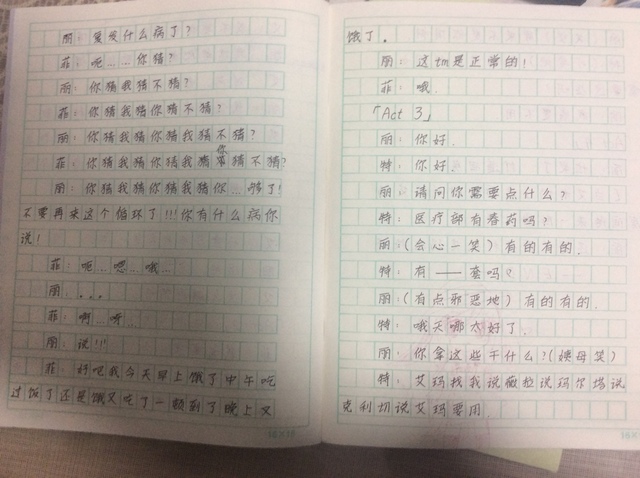 丽：爱发什么病了？
菲：呃……你猜？
丽：你猜我猜不猜？
菲：你猜我猜你猜不猜？
丽：你猜我猜你猜我猜不猜？
菲：你猜我猜你猜我猜你猜不猜？
丽：你猜我猜你猜我猜你…够了！
不要再来这个循环了！！！你有什么病你
说！
菲：呃…嗯…哦…
丽：...
菲：啊…呀…
丽：说！！！
菲：好吧我今天早上饿了中午吃
过饭了还是饿又吃了一顿到了晚上又
饿了。
丽：这tm是正常的！
菲：哦.
「Act 3」
丽：你好.
特：你好.
丽：请问你需要点什么？
特：医疗部有春药吗？
丽：（会心一笑）有的有的.
特：有——套吗？
丽：（有点邪恶地）有的有的.
特：哦天哪太好了.
丽：你拿这些干什么？（姨母笑）
特：艾玛找我说薇拉说玛尔塔说
克利切说艾玛要用.
16×18